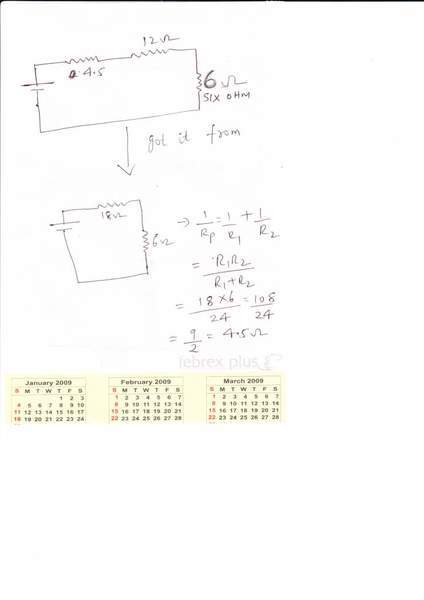 12Ω
4.5
6Ω
SIX OHM
got it from
18Ω
6Ω
→ 1/Rp = 1/R1 + 1/R2
= R1R2/R1+R2
= 18×6/24 = 108/24
= 9/2 = 4.5Ω
febrex plus
January 2009
S M T W T F S
1 2 3
4 5 6 7 8 9 10
11 12 13 14 15 16 17
18 19 20 21 22 23 24
February 2009
S M T W T F S
1 2 3 4 5 6 7
8 9 10 11 12 13 14
15 16 17 18 19 20 21
22 23 24 25 26 27 28
March 2009
S M T W T F S
1 2 3 4 5 6 7
8 9 10 11 12 13 14
15 16 17 18 19 20 21
22 23 24 25 26 27 28